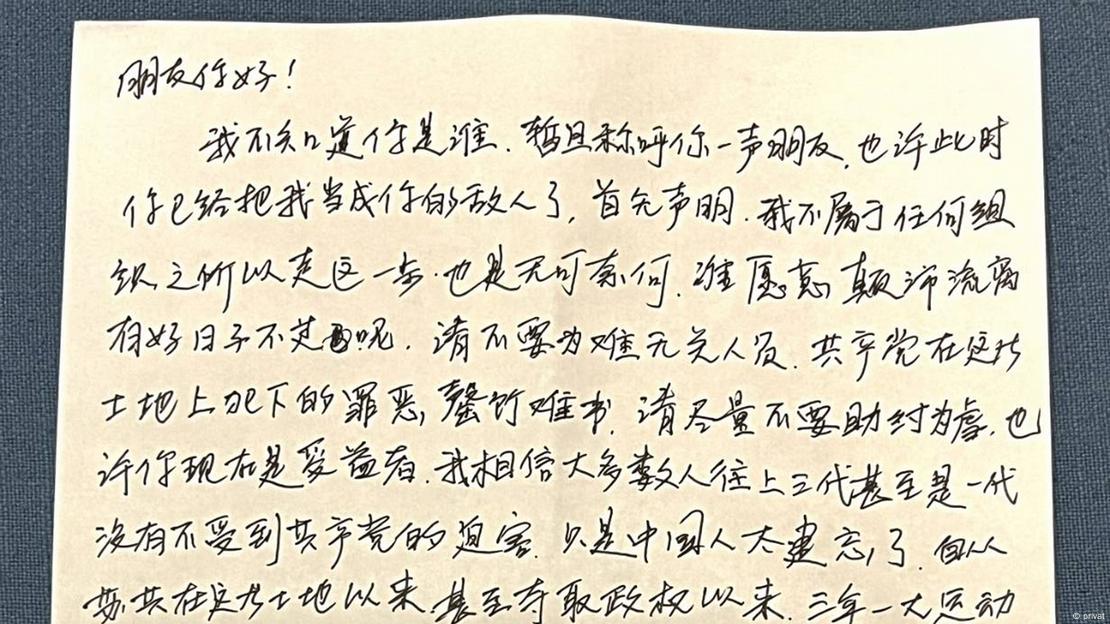 朋友你好！
我不知道你是谁，暂且称呼你一声朋友，也许此时
你已给把我当成你的敌人了，首先声明，我不属于任何组
织之所以走这一步，也是无可奈何，谁愿意颠沛流离
有好日子不过呢，请不要为难无关人员，共产党在这片
土地上犯下的罪恶，罄竹难书，请尽量不要助纣为虐，也
许你现在是受益者，我相信大多数人往上三代甚至是一代
没有不受到共产党的迫害，只是中国人太健忘了，自从
苏共在这片土地以来，甚至夺取政权以来，三年一大运动
© privat